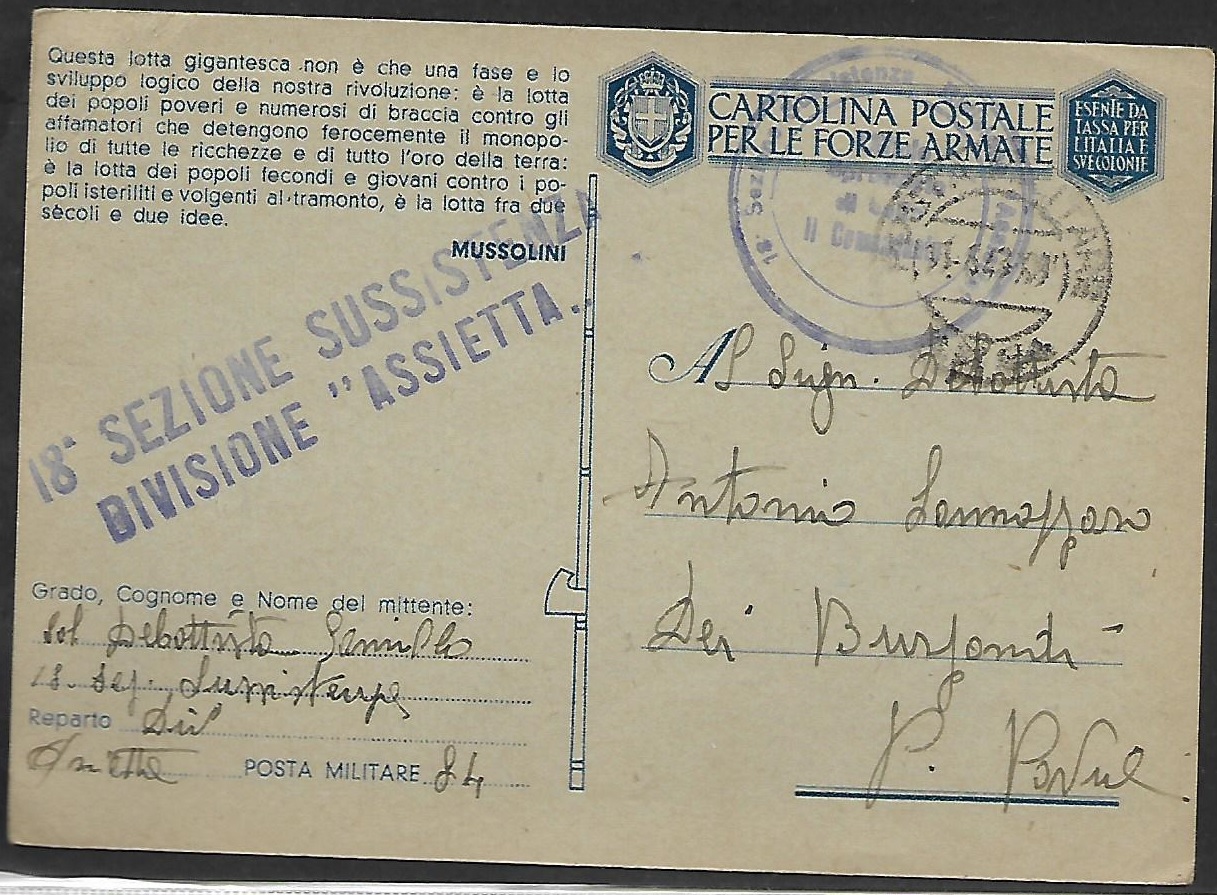 Questa lotta gigantesca non è che una fase e lo
sviluppo logico della nostra rivoluzione: è la lotta
dei popoli poveri e numerosi di braccia contro gli
affamatori che detengono ferocemente il monopo-
lio di tutte le ricchezze e di tutto l'oro della terra:
è la lotta dei popoli fecondi e giovani contro i po-
poli isteriliti e volgenti al tramonto, è la lotta fra due
sècoli e due idee.
MUSSOLINI
18ª SEZIONE SUSSISTENZA
DIVISIONE "ASSIETTA"
Grado, Cognome e Nome del mittente:
Sol Debottista
18. Sez. Sussistenza
Reparto Div
POSTA MILITARE 84
CARTOLINA POSTALE
PER LE FORZE ARMATE
ESENTE DA
TASSA PER
L'ITALIA E
SVE COLONIE
18ª Sez
Il
Al Sign. Debottista
Antonio
Dei Burgondi
P.